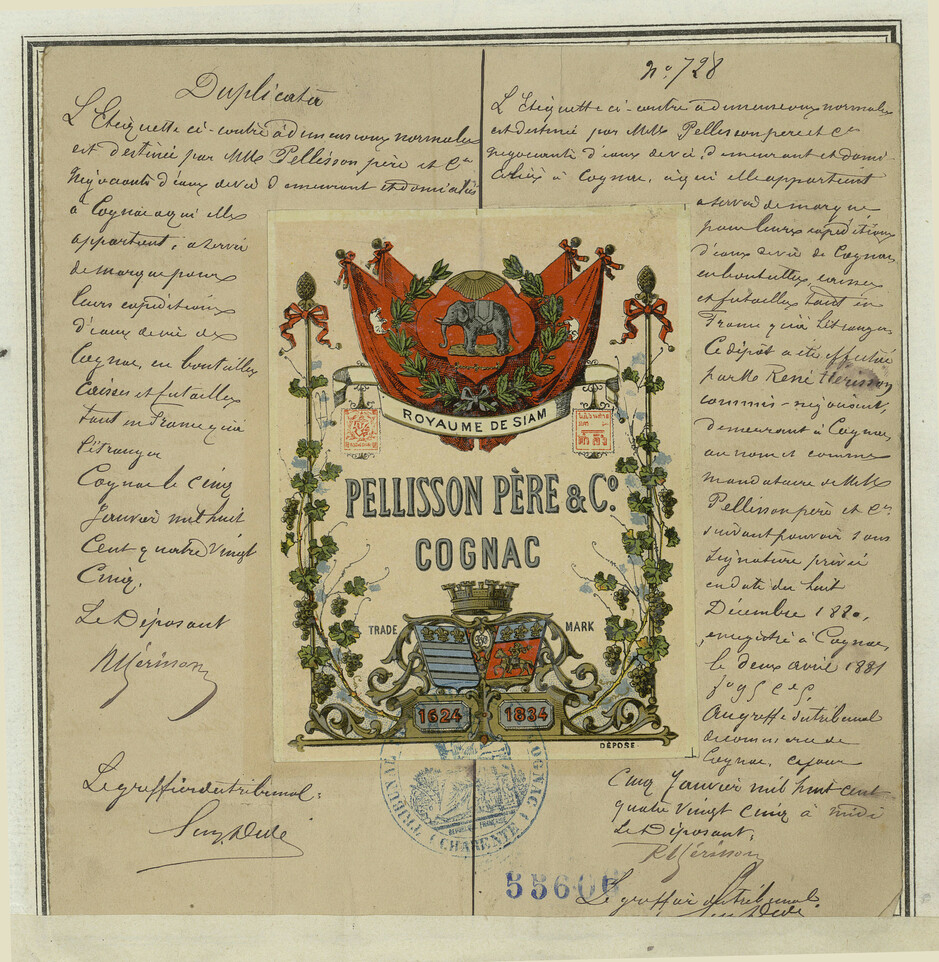 Duplicata
L'Etiquette ci-contre à dimensions normales
est destinée par MMrs Pellisson père et Cie
Négociants d'eaux de vie demeurant et domiciliés
à Cognac à qui elle
appartient, à servir
de marque pour
leurs expéditions
d'eaux de vie de
Cognac, en bouteilles
caisses et futailles
tant en France qu'à
l'étranger
Cognac le cinq
Janvier mil huit
cent quatre vingt
cinq.
Le Déposant
RHérisson
Le greffier du tribunal:
No. 728
L'Etiquette ci-contre à dimensions normales
est destinée par MMrs Pellisson père et Cie
négociants d'eaux de vie, demeurant et domi-
ciliés à Cognac, à qui elle appartient
à servir de marque
pour leurs expéditions
d'eaux de vie de Cognac,
en bouteilles, caisses
et futailles tant en
France qu'à l'étranger
Ce dépôt a été effectué
par Mr René Hérisson
commis-négociant,
demeurant à Cognac,
au nom et comme
mandataire de MMrs
Pellisson père et Cie
suivant pouvoir sous
signature privée
en date du huit
Décembre 1880,
enregistré à Cognac,
le deux avril 1881
Au greffe du tribunal
de commerce de
Cognac, ce jour
cinq Janvier mil huit cent
quatre vingt cinq à midi
Le Déposant,
RHérisson
Le greffier du tribunal
ROYAUME DE SIAM
PELLISSON PÈRE & Co.
COGNAC
TRADE MARK
1624 1834
DÉPOSÉ
TRIBUNAL COGNAC
(CHARENTE)